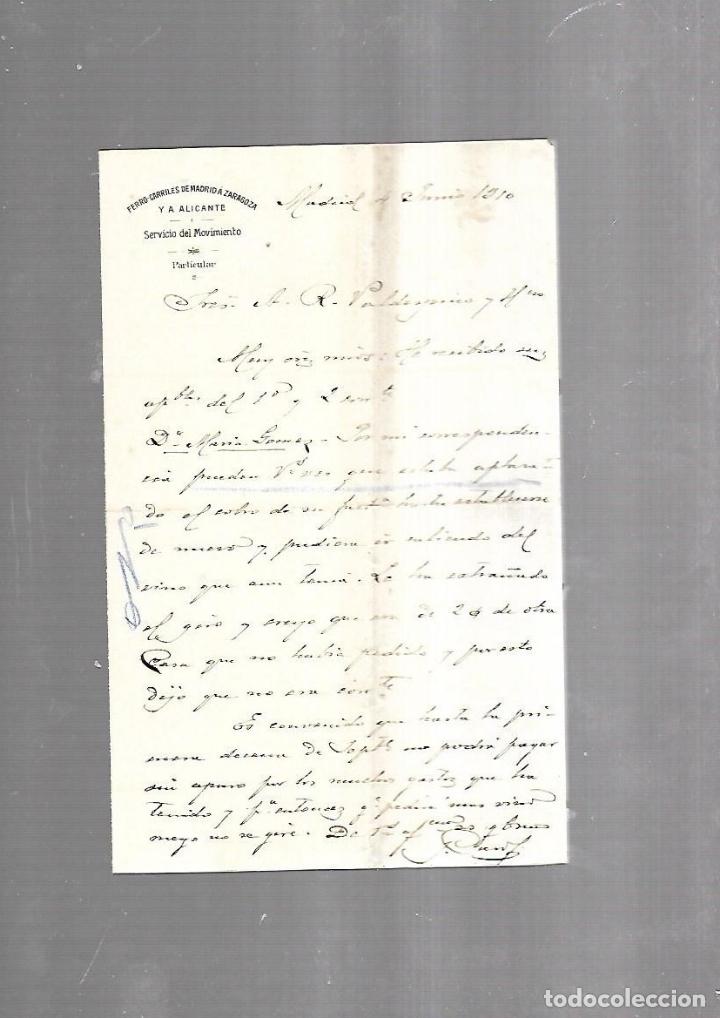 FERRO-CARRILES DE MADRID A ZARAGOZA
Y A ALICANTE
Servicio del Movimiento
Particular
Madrid 4 Junio 1910
Sres. A. R. Valdespino y Hno
Muy Sres mios: He recibido sus
del 1º y 2 corrte
Dª Maria Gomez - Por mi corresponden-
cia pueden Vds ver que estaba aplaza-
do el cobro de su factª hasta establecerse
de nuevo y pudiera ir saliendo del
vino que aun tenia. Le ha extrañado
el giro y creyo que era de 26 de otra
Casa que no habia pedido y por esto
dijo que no era conte
Es convenido que hasta la pri-
mera decena de Sepbre no podrá pagar
sin apuro por los muchos gastos que ha
tenido y pª entonces pedirá mas vino
no se gire. De Vds
todocoleccion.net